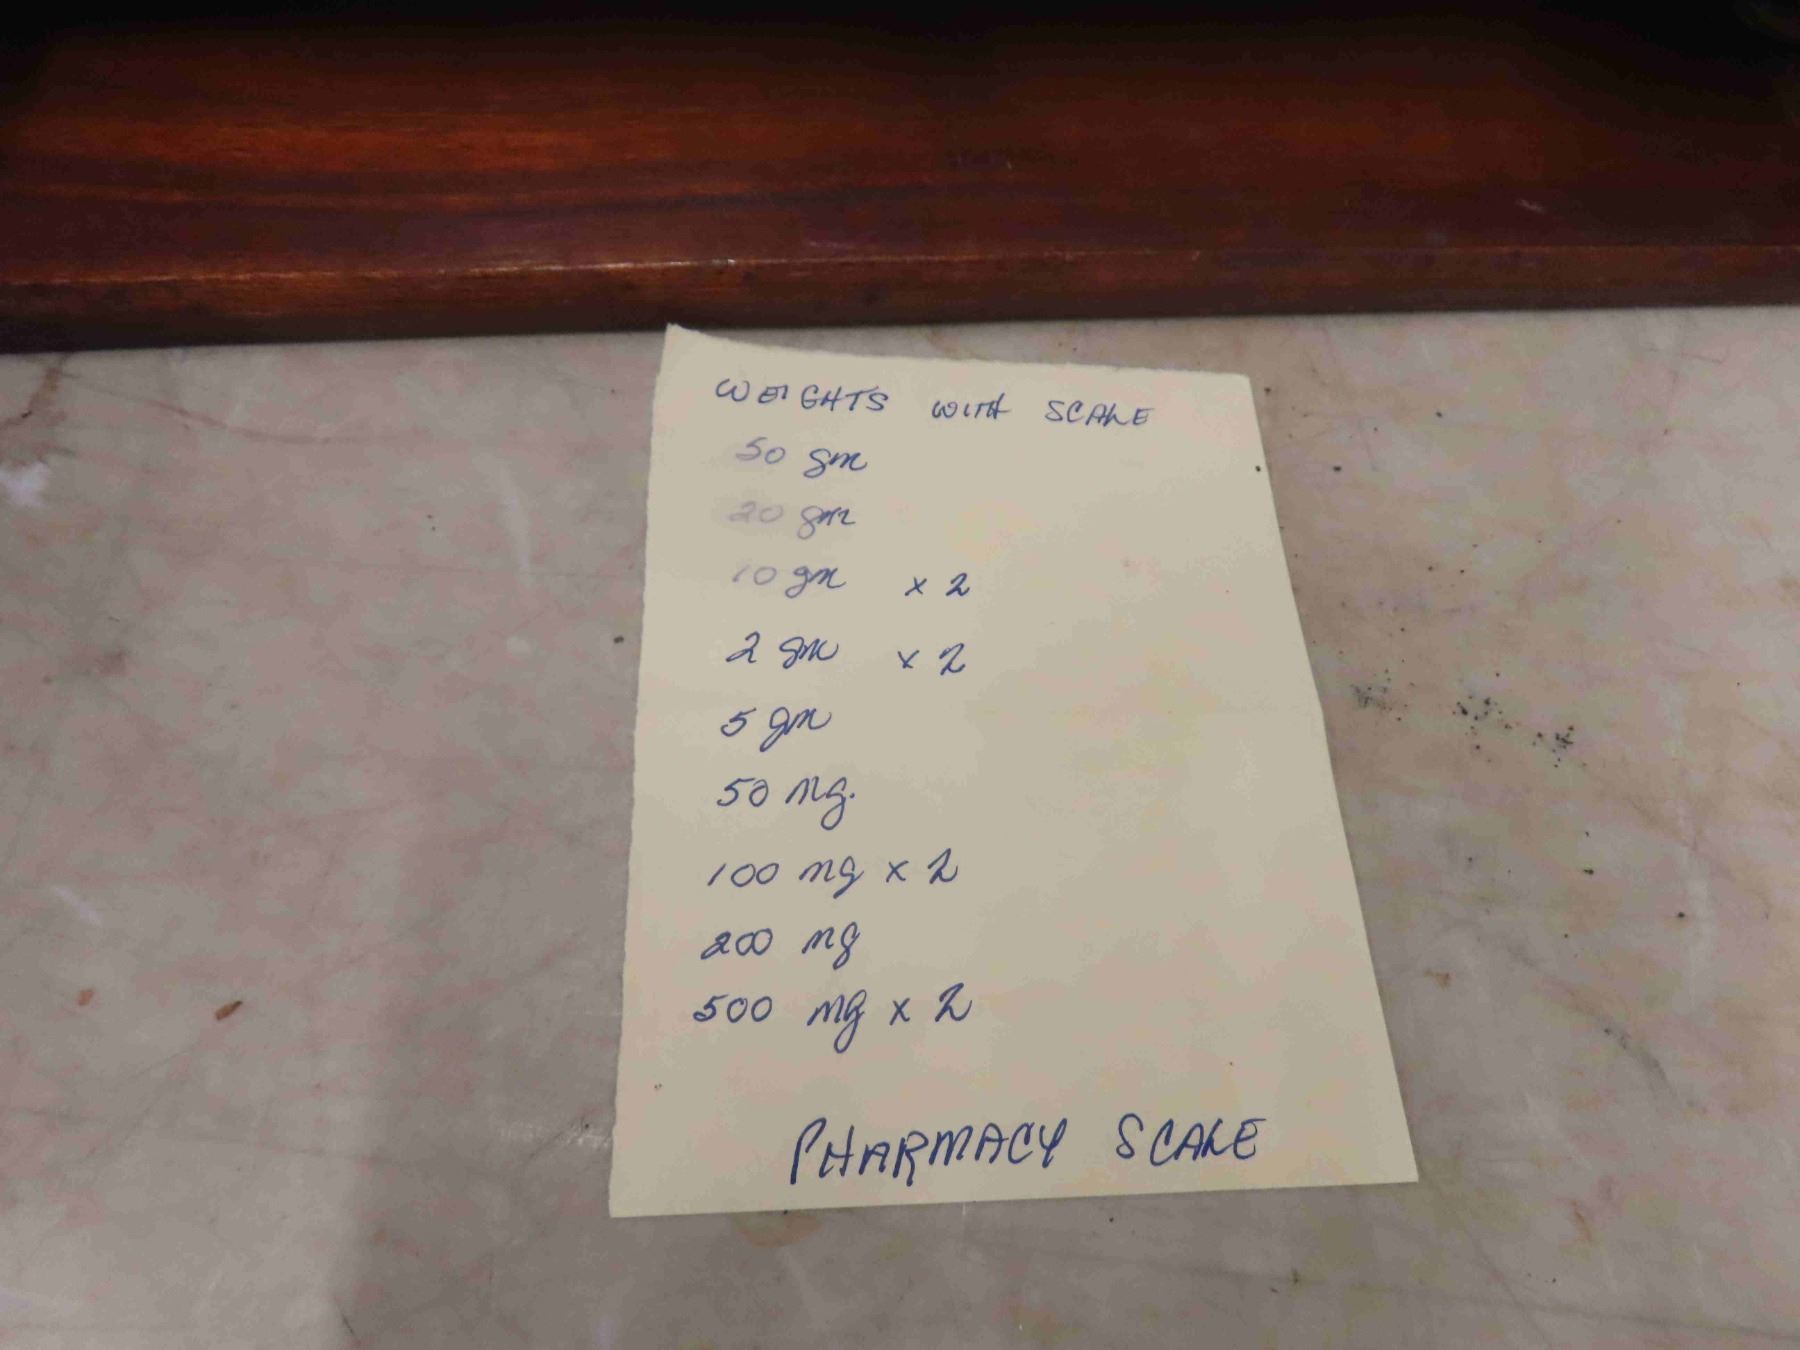 WEIGHTS WITH SCALE
50 gm
20 gm
10 gm x 2
2 gm x 2
5 gm
50 mg.
100 mg x 2
200 mg
500 mg x 2
PHARMACY SCALE